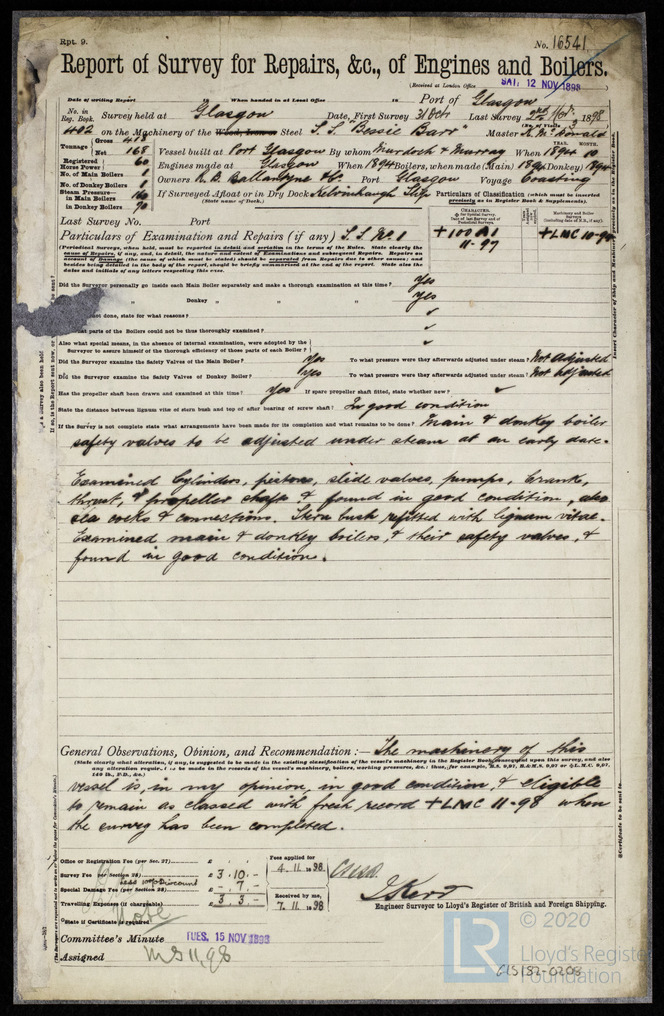 Rpt. 9.
No. 16541
Report of Survey for Repairs, &c., of Engines and Boilers.
(Received at London Office
SAT. 12 NOV 1898
Date of writing Report 18 When handed in at Local Office 18 Port of Glasgow
No. in Reg. Book. Survey held at Glasgow Date, First Survey 31 Oct Last Survey 2nd Nov. 1898
402 on the Machinery of the Wood, Iron or Steel S.S. "Bessie Barr" Master
Tonnage Gross
Net 168 Vessel built at Port Glasgow By whom Murdoch & Murray When 1894 10
Registered Horse Power 60 Engines made at Glasgow When 1894 Boilers, when made (Main) 1894 (Donkey) 1894
No. of Main Boilers 1
No. of Donkey Boilers 1 Owners R. B. Ballantyne & Co Port Glasgow Voyage Coasting
Steam Pressure in Main Boilers 160 If Surveyed Afloat or in Dry Dock Kelvinhaugh Slip Particulars of Classification (which must be inserted precisely as in Register Book & Supplements).
in Donkey Boilers 70 (State name of Dock.)
Last Survey No. Port
Particulars of Examination and Repairs (if any) S.S. No. 1 +100A1 +LMC 10-94
11-97
(Periodical Surveys, when held, must be reported in detail and seriatim in the terms of the Rules. State clearly the
cause of Repairs, if any, and, in detail, the nature and extent of Examinations and subsequent Repairs. Repairs on
account of Damage (the cause of which must be stated) should be separated from Repairs due to other causes; and
besides being detailed in the body of the report, should be briefly summarised at the end of the report. State also the
dates and initials of any letters respecting this case.
Did the Surveyor personally go inside each Main Boiler separately and make a thorough examination at this time? Yes
" " Donkey " " " Yes
not done, state for what reasons? "
parts of the Boilers could not be thoroughly examined? "
Also what special means, in the absence of internal examination, were adopted by the
Surveyor to assure himself of the thorough efficiency of those parts of each Boiler? "
Did the Surveyor examine the Safety Valves of the Main Boiler? Yes To what pressure were they afterwards adjusted under steam? Not Adjusted
Did the Surveyor examine the Safety Valves of Donkey Boiler? Yes To what pressure were they afterwards adjusted under steam? Not Adjusted
Has the propeller shaft been drawn and examined at this time? Yes If spare propeller shaft fitted, state whether new?
State the distance between lignum vitæ of stern bush and top of after bearing of screw shaft? In good condition
If the Survey is not complete state what arrangements have been made for its completion and what remains to be done? Main & donkey boiler
safety valves to be adjusted under steam at an early date.
Examined Cylinders, pistons, slide valves, pumps, Crank,
thrust, & propeller shafts & found in good condition, also
sea cocks & connections. Stern bush refitted with lignum vitae.
Examined main & donkey boilers, & their safety valves, &
found in good condition.
General Observations, Opinion, and Recommendation :— The machinery of this
(State clearly what alteration, if any, is suggested to be made in the existing classification of the vessel's machinery in the Register Book consequent upon this survey, and also
any alteration required to be made in the records of the vessel's machinery, boilers, working pressures, &c.: thus, for example, B.S. 9,97, B.&M.S. 9,97 or L.M.C. 9,97,
140 lb., F.D., &c.)
vessel is, in my opinion, in good condition & eligible
to remain as classed with fresh record +LMC 11-98 when
the survey has been completed.
Office or Registration Fee (per Sec. 27) £ Fees applied for
Survey Fee (per Section 28) £ 3.10.- 4.11.1898
less 10% Discount
Special Damage Fee (per Section 28) £ -.7.- Received by me,
Travelling Expenses (if chargeable) £ 3.3.- 7.11.1898
Engineer Surveyor to Lloyd's Register of British and Foreign Shipping.
State if Certificate is required
Note
Committee's Minute TUES. 15 NOV 1898
Assigned MS 11,98
© 2020
LR
Lloyd's Register
Foundation